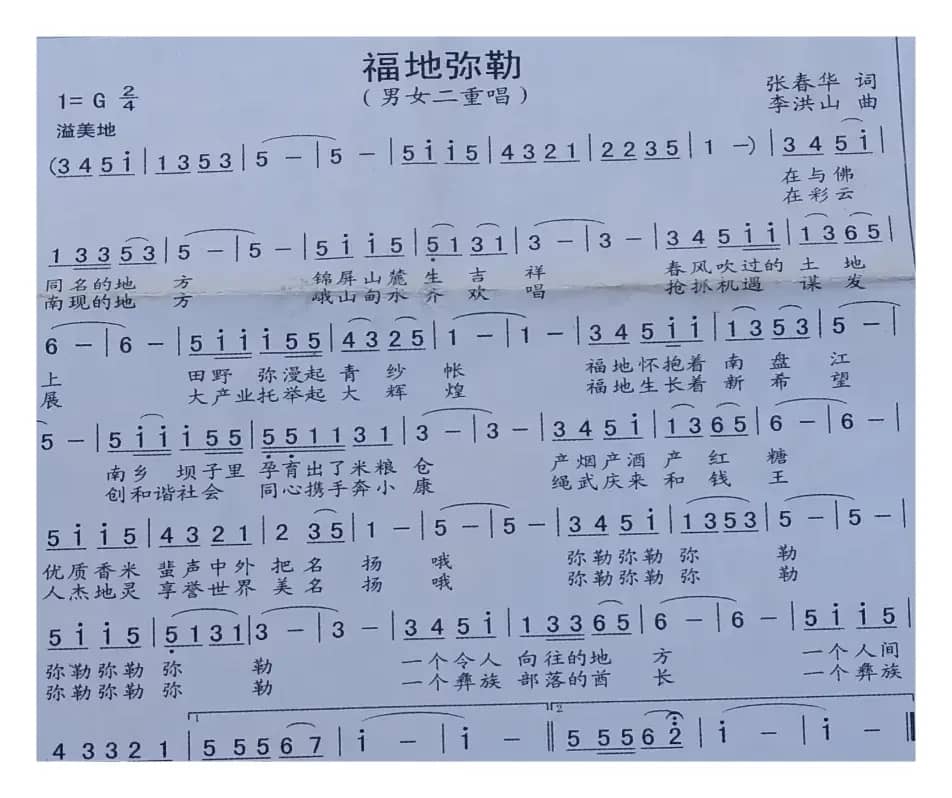 福地弥勒
（男女二重唱）
1= G 2/4
张春华 词
李洪山 曲
溢美地
(3 4 5 i | 1 3 5 3 | 5 － | 5 － | 5 i i 5 | 4 3 2 1 | 2 2 3 5 | 1 －) | 3 4 5 i |
在与佛
在彩云
1 3 3 5 3 | 5 － | 5 － | 5 i i 5 | 5 1 3 1 | 3 － | 3 － | 3 4 5 i i | 1 3 6 5 |
同名的地 方 锦屏山麓 生 吉 祥 春风吹过的 土 地
南现的地 方 峨山甸水 齐 欢 唱 抢抓机遇 谋 发
6 － | 6 － | 5 i i i 5 5 | 4 3 2 5 | 1 － | 1 － | 3 4 5 i i | 1 3 5 3 | 5 － |
上 田野 弥漫起 青 纱 帐 福地怀抱着 南 盘 江
展 大产业托举起 大 辉 煌 福地生长着 新 希 望
5 － | 5 i i i 5 5 | 5 5 1 1 3 1 | 3 － | 3 － | 3 4 5 i | 1 3 6 5 | 6 － | 6 － |
南乡 坝子里 孕育出了米粮 仓 产烟产酒 产 红 糖
创和谐社会 同心携手奔小 康 绳武庆来 和 钱 王
5 i i 5 | 4 3 2 1 | 2 3 5 | 1 － | 5 － | 5 － | 3 4 5 i | 1 3 5 3 | 5 － | 5 － |
优质香米 蜚声中外 把 名 扬 哦 弥勒弥勒 弥 勒
人杰地灵 享誉世界 美 名 扬 哦 弥勒弥勒 弥 勒
5 i i 5 | 5 1 3 1 | 3 － | 3 － | 3 4 5 i | 1 3 3 6 5 | 6 － | 6 － | 5 i i 5 |
弥勒弥勒 弥 勒 一个令人 向往的地 方 一个人间
弥勒弥勒 弥 勒 一个彝族 部落的酋 长 一个彝族
4 3 3 2 1 | 1. 5 5 5 6 7 | i － | i － || 2. 5 5 5 6 2 | i － | i － ||